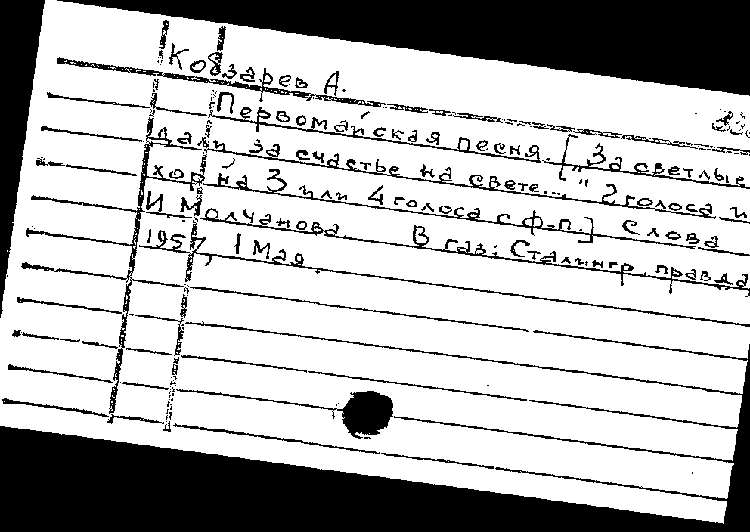 Кобзарев, А.
Первомайская песня. ["За светлые
дали за счастье на свете..." 2 голоса и
хор на 3 или 4 голоса с ф-п.] Слова
И. Молчанова. В газ: Сталингр. правда,
1957, 1 Мая.